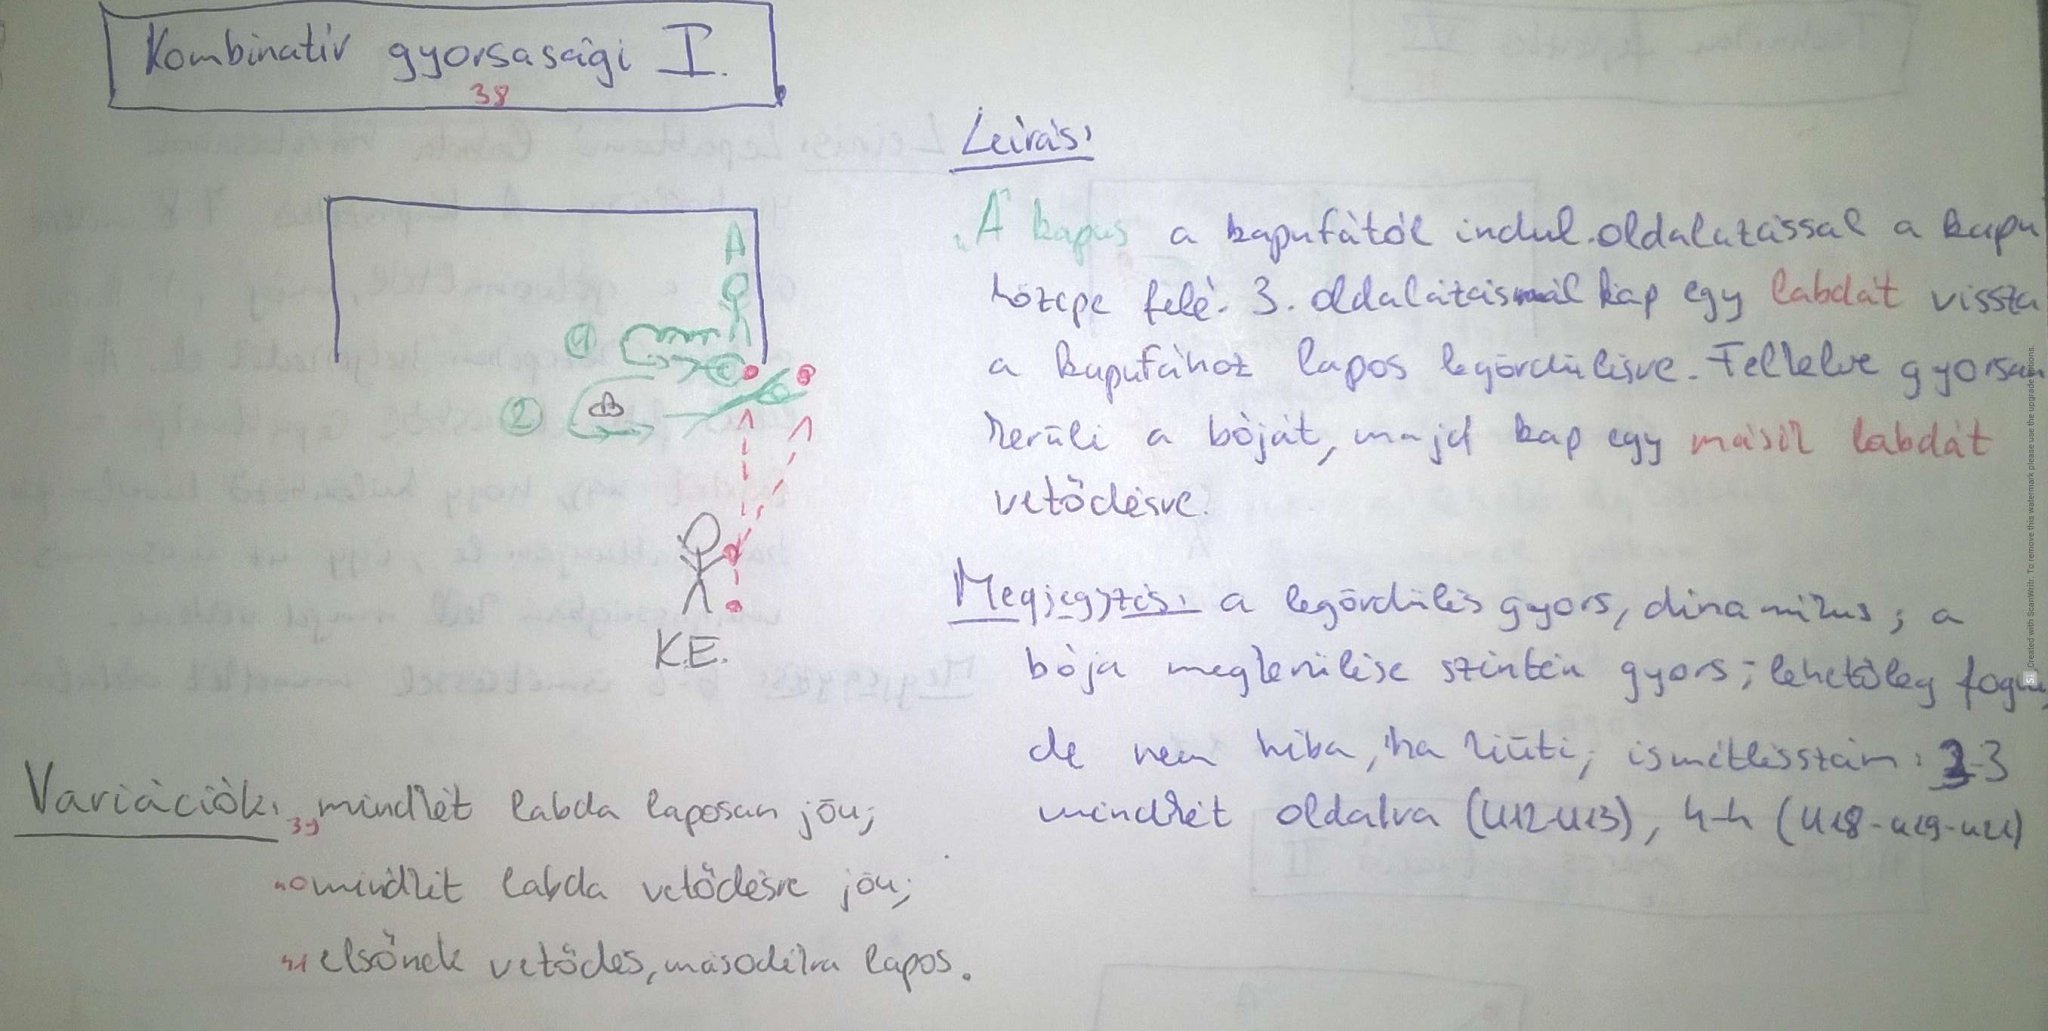 Kombinatív gyorsasági I.
38
Leírás:
"A" kapus a kapufától indul oldalazással a kapu
közepe felé. 3. oldalazásnál kap egy labdát vissza
a kapufához lapos legördülésre. Felkelve gyorsan
kerüli a bóját, majd kap egy másik labdát
vetődésre.
A
1
B
2
K.E.
Megjegyzés: a legördülés gyors, dinamikus; a
bója megkerülése szintén gyors; lehetőleg fogni,
de nem hiba, ha kiüti; ismétlésszám: 3-3
mindkét oldalra (U12-U13), 4-4 (U18-U19-U21)
Variációk: 39 mindkét labda laposan jön;
40 mindkét labda vetődésre jön;
41 elsőnek vetődés, másodikra lapos.
Created with ScanWritr. To remove this watermark please use the upgrade options.